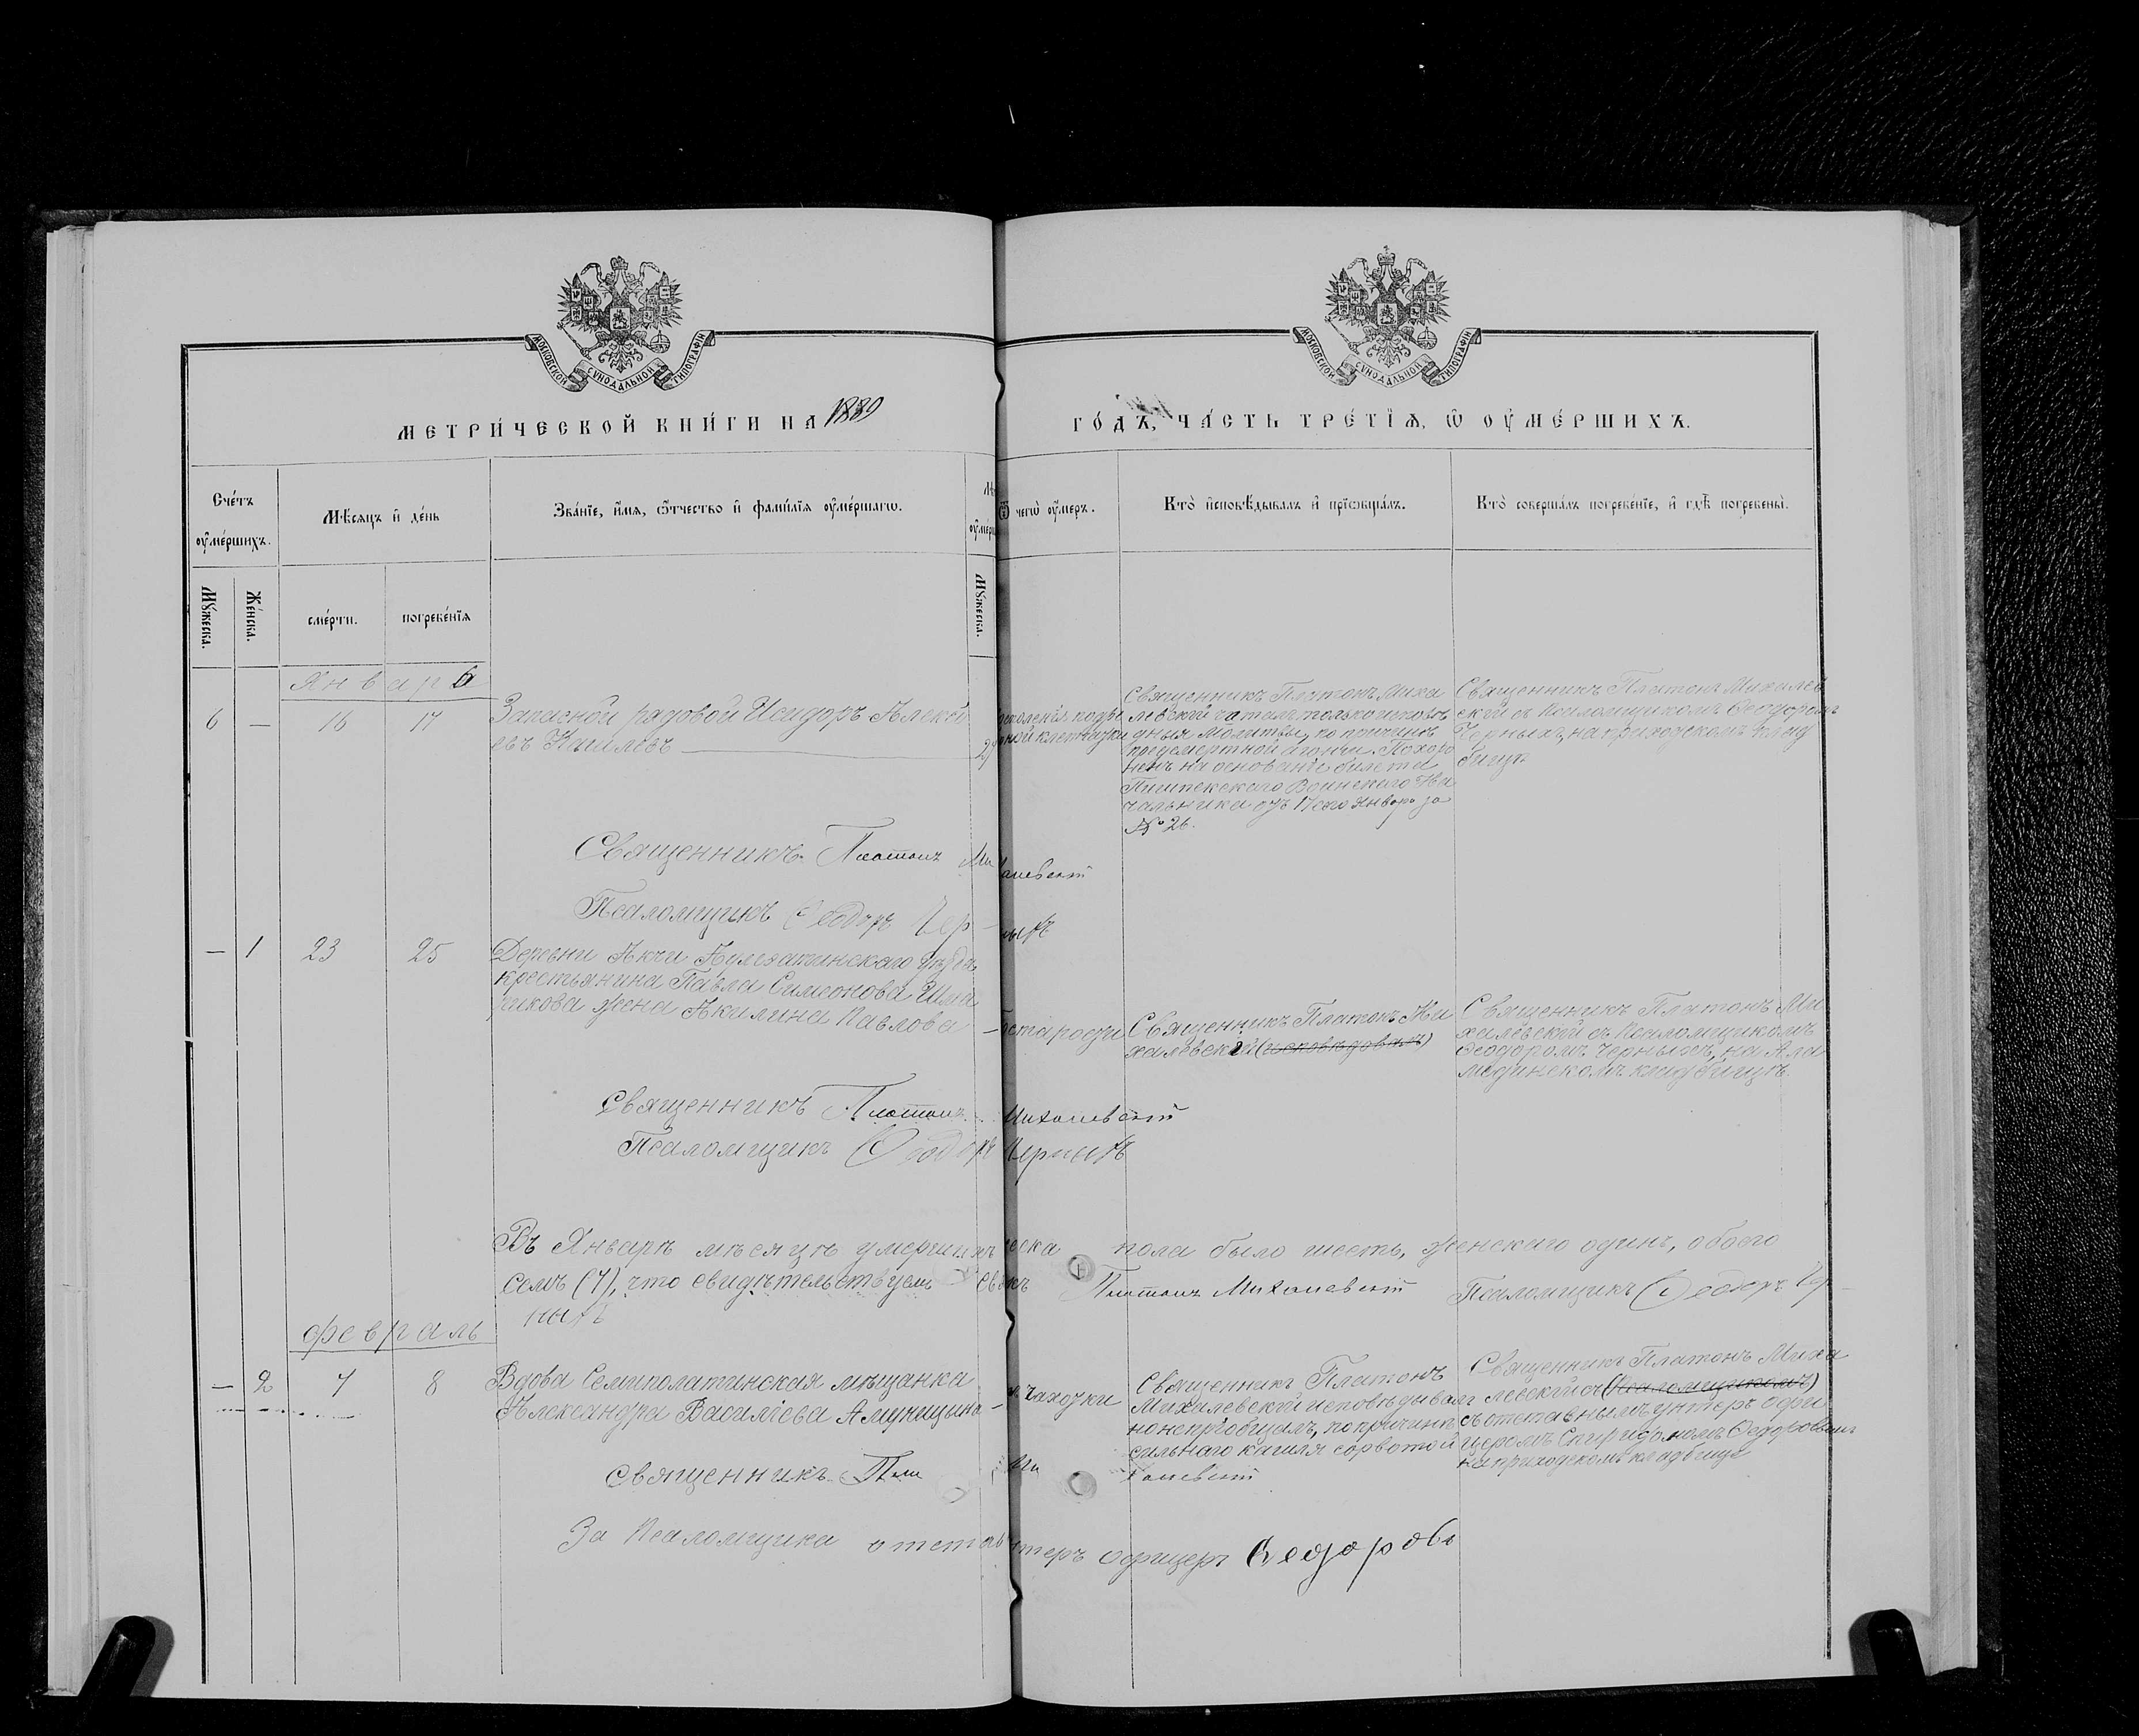 МОСКОВСКОЙ СѴНОДАЛЬНОЙ ТИПОГРАФІИ
МОСКОВСКОЙ СѴНОДАЛЬНОЙ ТИПОГРАФІИ
МЕТРИ́ЧЕСКОЙ КНИ́ГИ НА 1889
ГО́ДЪ, ЧА́СТЬ ТРЕ́ТІѦ, Ѿ ОУ҆МЕ́РШИХЪ.
Сче́тъ оу҆ме́ршихъ.
Мѣ́сяцъ и҆ де́нь
Зва́нїе, и҆́мя, ѻ҆́тчество и҆ фами́лїя оу҆ме́ршагѡ.
Ѿ чегѡ̀ оу҆́меръ.
Кто̀ и҆сповѣ́дывалъ и҆ прїѡбща́лъ.
Кто̀ соверша́лъ погребе́нїе, и҆ гдѣ̀ погребены̀.
Мꙋ́жеска.
Же́нска.
сме́рти.
погребе́нїя
Мꙋ́жеска.
Январь
6 — 16 17
Запасной рядовой Исидоръ Алексѣ
евъ
Священникъ Платонъ Миха
левскій читалъ только исповѣ
дныя молитвы, по причинѣ
предсмертной агоніи. Похоро
ненъ на основаніи билета
Пишпекскаго Воинскаго На
чальника отъ 17 сего Января за
№ 26.
Священникъ Платонъ Михалев
скій съ Псаломщикомъ Ѳеодоромъ
Черныхъ, на приходскомъ клад
бищѣ
Священникъ Платонъ Михалевскій
Псаломщикъ Ѳеодоръ Черныхъ
— 1 23 25
Деревни
крестьянина Павла Симеонова
жена Акилина Павлова
старости
Священникъ Платонъ Ми
халевскій (исповѣдовалъ)
Священникъ Платонъ Ми
халевскій съ Псаломщикомъ
Ѳеодоромъ Черныхъ, на Ала
мединскомъ кладбищѣ.
Священникъ Платонъ Михалевскій
Псаломщикъ Ѳеодоръ Черныхъ
Въ Январѣ мѣсяцѣ умершихъ пола было шесть, женскаго одинъ, обоего
семь (7), что свидѣтельствуемъ Платонъ Михалевскій Псаломщикъ Ѳеодоръ Чер-
ныхъ
Февраль
— 2 7 8
Вдова Семипалатинская мѣщанка
Александра Василіева
чахотки
Священникъ Платонъ
Михалевскій исповѣдывалъ
но непріобщалъ, по причинѣ
сильнаго кашля с рвотой
Священникъ Платонъ Миха
левскій съ (Псаломщикомъ)
съ отставнымъ унтеръ офи
церомъ Спиридономъ Ѳедоровымъ
на приходскомъ кладбищѣ
Священникъ Михалевскій
За Псаломщика офицеръ Ѳедоровъ